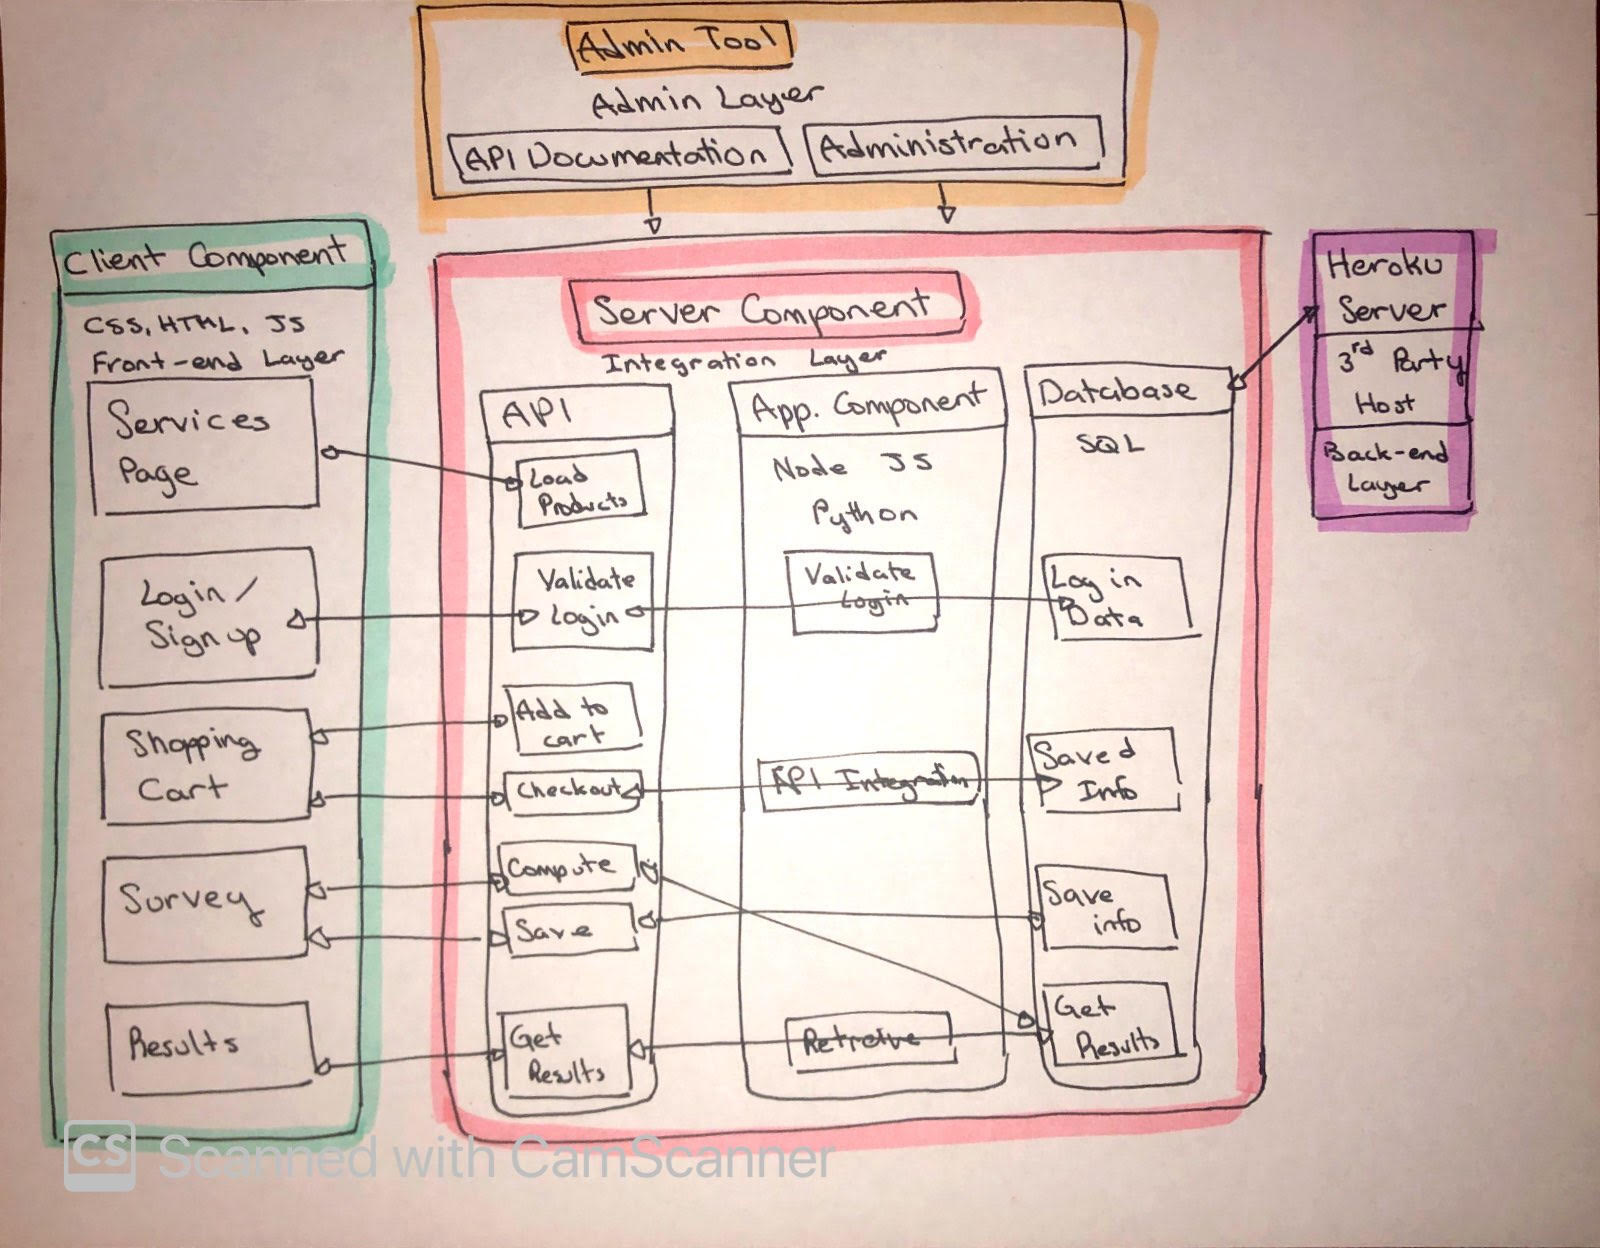 Admin Tool
Admin Layer
API Documentation
Administration
Client Component
CSS, HTML, JS
Front-end Layer
Services
Page
Login /
Sign up
Shopping
Cart
Survey
Results
Server Component
Integration Layer
API
Load
Products
Validate
Login
Add to
cart
Checkout
Compute
Save
Get
Results
App. Component
Node JS
Python
Validate
Login
API Integration
Retreive
Database
SQL
Log in
Data
Saved
Info
Save
info
Get
Results
Heroku
Server
3rd Party
Host
Back-end
Layer
CS Scanned with CamScanner